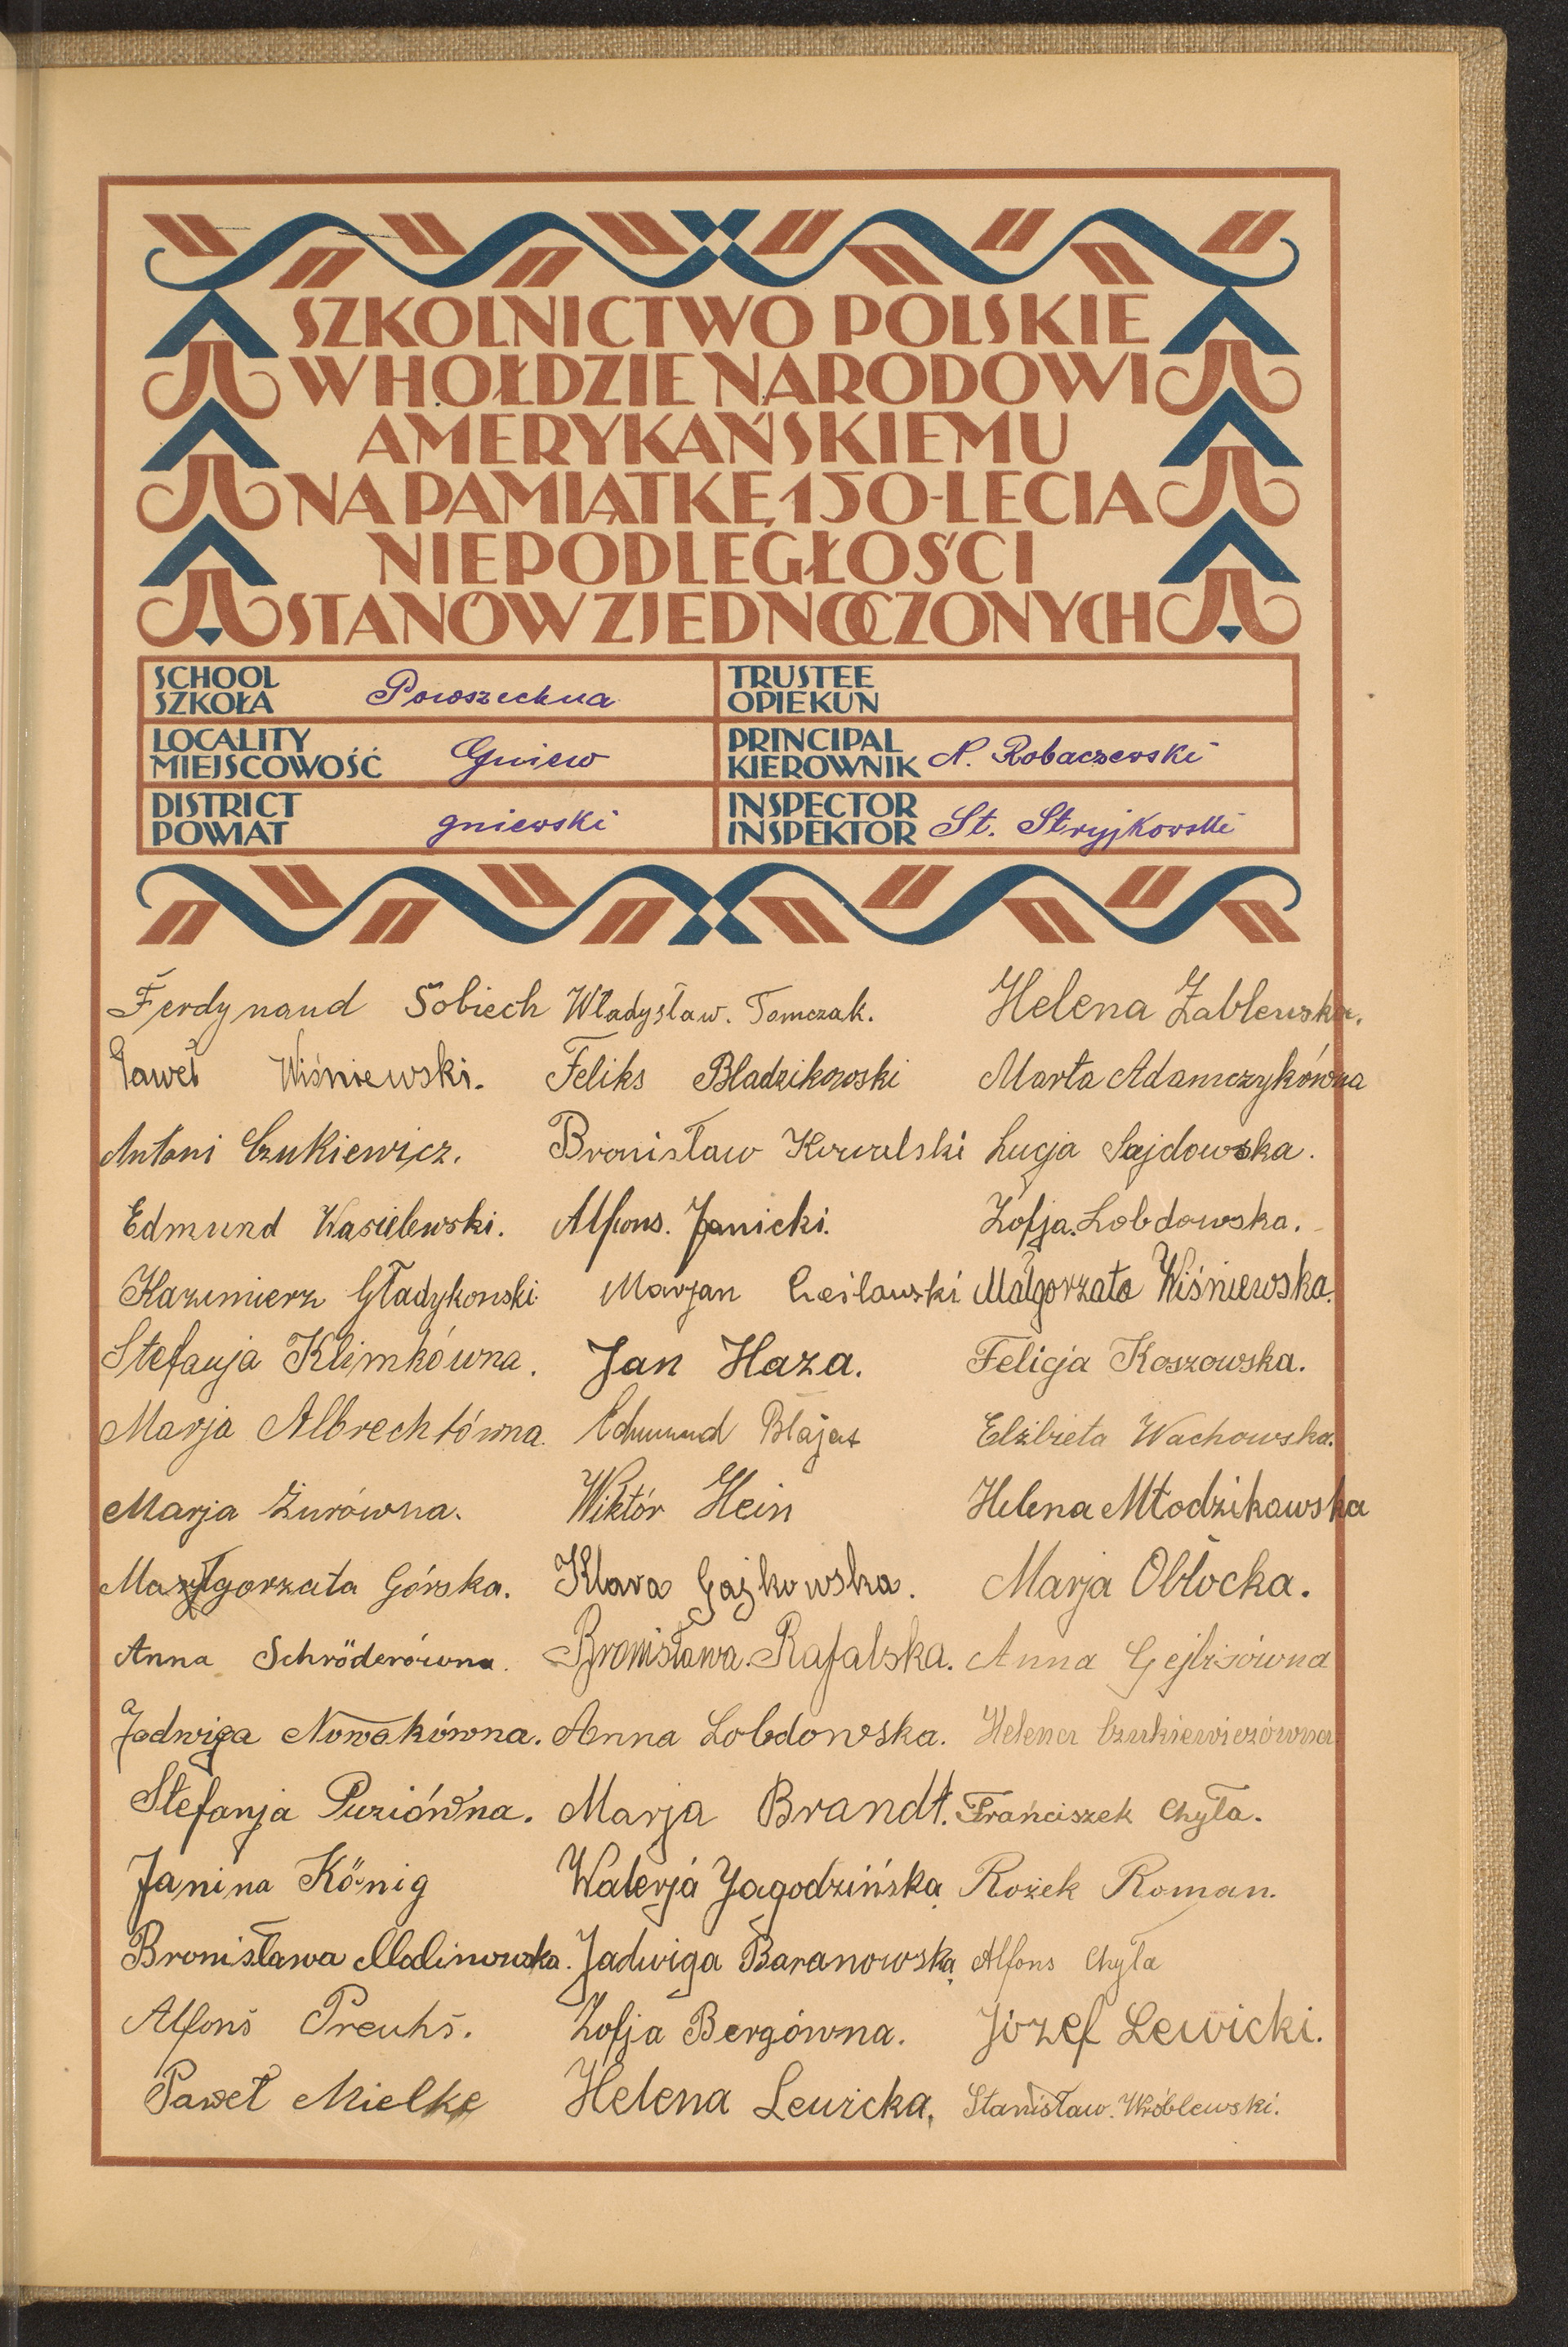 SZKOLNICTWO POLSKIE
W HOŁDZIE NARODOWI
AMERYKAŃSKIEMU
NA PAMIĄTKĘ 150-LECIA
NIEPODLEGŁOŚCI
STANÓW ZJEDNOCZONYCH
SCHOOL
SZKOŁA Powszechna
TRUSTEE
OPIEKUN
LOCALITY
MIEJSCOWOŚĆ Gniew
PRINCIPAL
KIEROWNIK N. Robaczewski
DISTRICT
POWIAT gniewski
INSPECTOR
INSPEKTOR St. Stryjkowski
Ferdynand Sobiech Władysław. Tomczak. Helena Zablewska.
Paweł Wiśniewski. Feliks Bladzikowski Marta Adamczykówna
Antoni Czukiewicz. Bronisław Kowalski Łucja Sajdowska.
Edmund Wasielewski. Alfons. Janicki. Zofja. Lobdowska.
Kazimierz Gładykonski Marjan Cieśławski Małgorzata Wiśniewska.
Stefanja Klimkówna. Jan Haza. Felicja Koszowska.
Marja Albrechtówna. Edmund Błajat Elżbieta Wachowska.
Marja Żurówna. Wiktór Hein Helena Młodzikowska
Małgorzata Górska. Klara Gajkowska. Marja Obłocka.
Anna Schröderówna. Bronisława. Rafalska. Anna
Jadwiga Nowakówna. Anna Lobdowska. Helena Czukiewiczówna
Stefanja Puziówna. Marja Brandt. Franciszek Chyła.
Janina König Walerja Jagodzińska Rożek Roman.
Bronisława Malinowska. Jadwiga Baranowska Alfons Chyła
Alfons Preuhs. Zofja Bergówna. Józef Lewicki.
Paweł Mielke Helena Lewicka. Stanisław. Wróblewski.